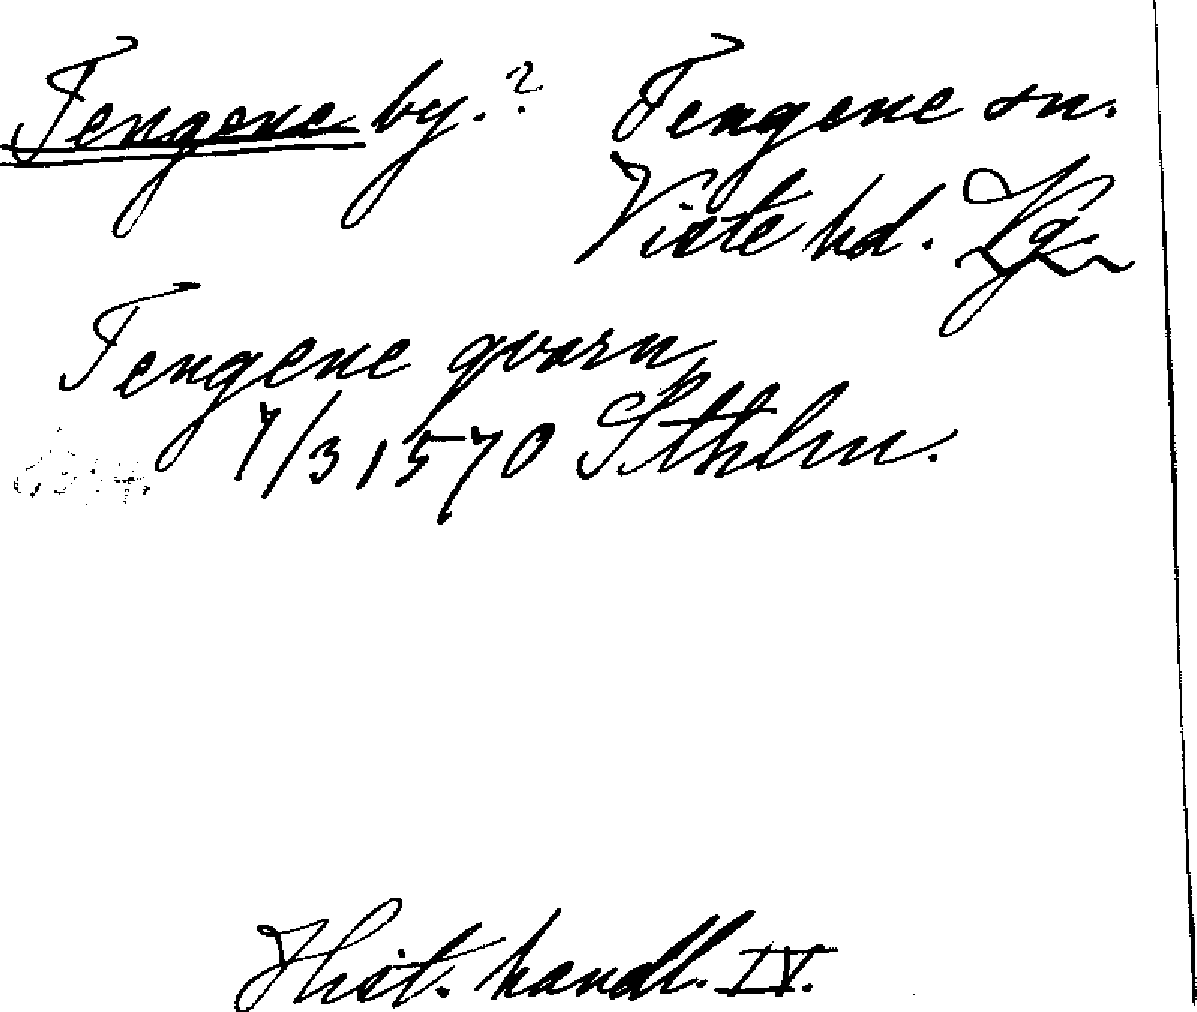 Tengene by.? Tengene sn.
Viste hd. Vg
Tengene qvarn,
7/3 1570 Sthlm.
Hist. handl. IV.